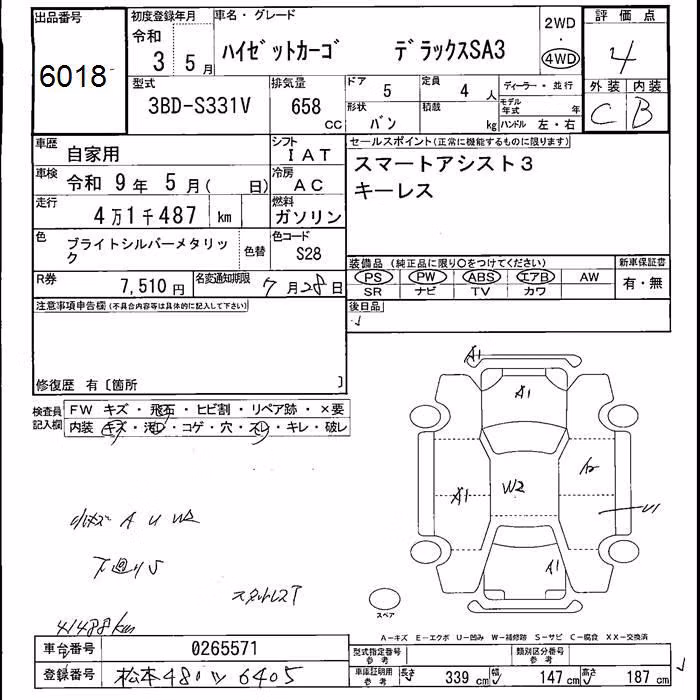 出品番号
6018
初度登録年月
令和
3 5月
車名・グレード
ハイゼットカーゴ デラックスSA3
2WD
・
4WD
評価点
4
外装 内装
C B
型式
3BD-S331V
排気量
658
cc
ドア
5
定員
4 人
形状
バン
積載
kg
ディーラー・並行
モデル年式 年
ハンドル 左・右
車歴
自家用
シフト
IAT
車検
令和 9年 5月( 日)
冷房
AC
走行
4万1千487 km
燃料
ガソリン
色
ブライトシルバーメタリック
色替
色コード
S28
R券
7,510円
名変通知期限
7月28日
セールスポイント(正常に機能するものに限ります)
スマートアシスト3
キーレス
装備品(純正品に限り○をつけてください)
PS PW ABS エアB AW
SR ナビ TV カワ
新車保証書
有・無
後日品
注意事項申告欄(不具合内容等は具体的に記入して下さい)
修復歴 有〔箇所 〕
検査員
記入欄
FW キズ・飛石・ヒビ割・リペア跡・×要
内装 キズ・汚れ・コゲ・穴・スレ・キレ・破レ
A1
A1
A2
A1
W2
U1
A1
A U W2
下回りS
スタッドレスT
41488km
スペア
A-キズ E-エクボ U-凹み W-補修跡 S-サビ C-腐食 XX-交換済
車台番号
0265571
登録番号
松本480ツ6405
型式指定番号
参考
類別区分番号
参考
車庫証明用
参考
長さ 339cm
幅 147cm
高さ 187cm